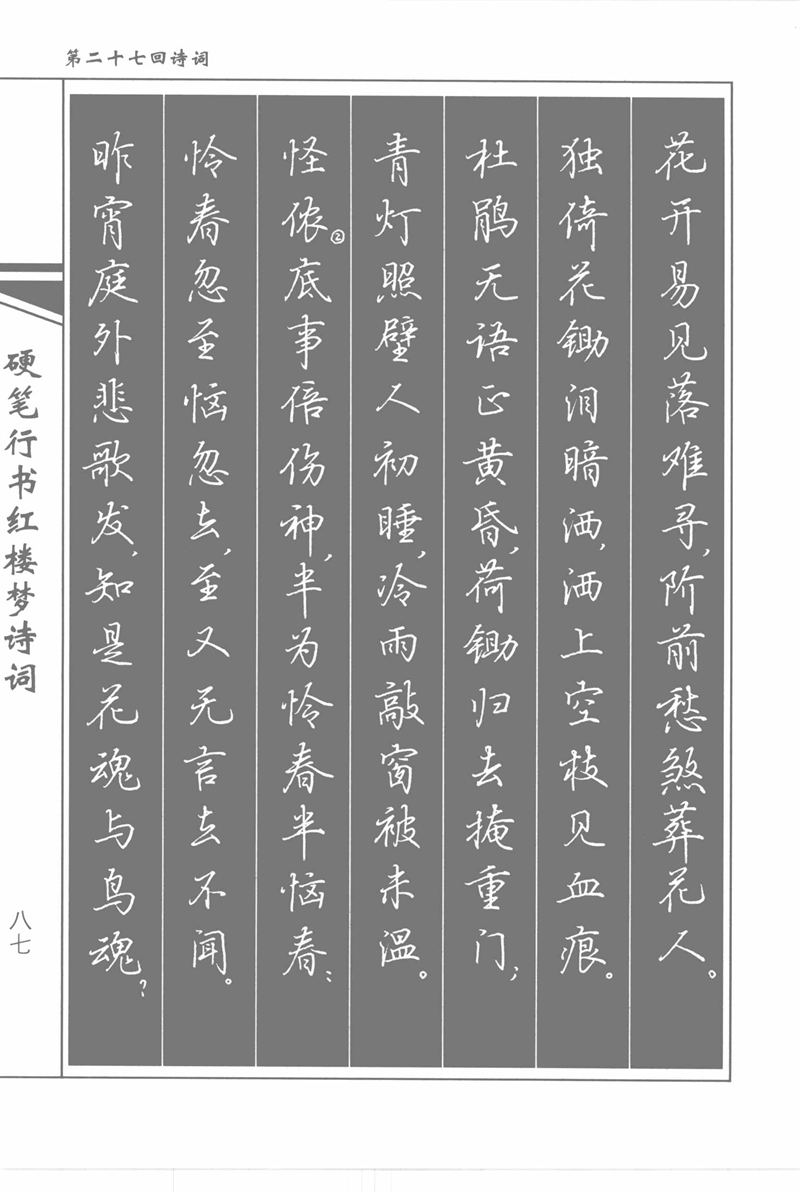 第二十七回诗词
花开易见落难寻，阶前愁煞葬花人。
独倚花锄泪暗洒，洒上空枝见血痕。
杜鹃无语正黄昏，荷锄归去掩重门；
青灯照壁人初睡，冷雨敲窗被未温。
怪侬②底事倍伤神，半为怜春半恼春：
怜春忽至恼忽去，至又无言去不闻。
昨宵庭外悲歌发，知是花魂与鸟魂？
硬笔行书红楼梦诗词
八七